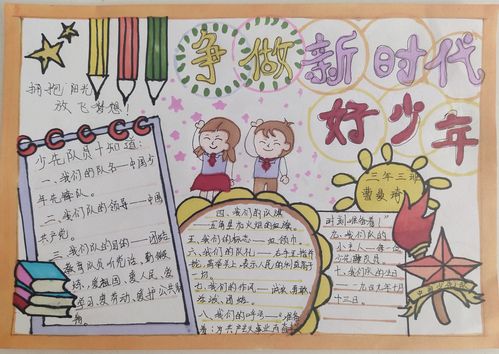 争做新时代
好少年
拥抱阳光
放飞梦想!
少先队员十知道:
一、我们的队名—中国少
年先锋队。
二、我们队的领导—中国
共产党。
三、我们队的目的—团结
教育队员听党话,勤锻
炼,爱祖国,爱人民,爱
学习,爱劳动,爱护公共财
四、我们的队旗
—五角星加火炬的红旗
五、我们的标志—红领巾。
六、我们的队礼—右手五指并
拢,高举头上,表示人民的利益高于
一切。
七、我们的作风—诚实,勇敢
活泼,团结。
八、我们的呼号—"准备
着:为共产主义事业而奋
三年三班
时刻准备着!"
九、我们队的
小主人—每一位
少先队员
十、我们队的生日
—一九四九年十月
十三日。